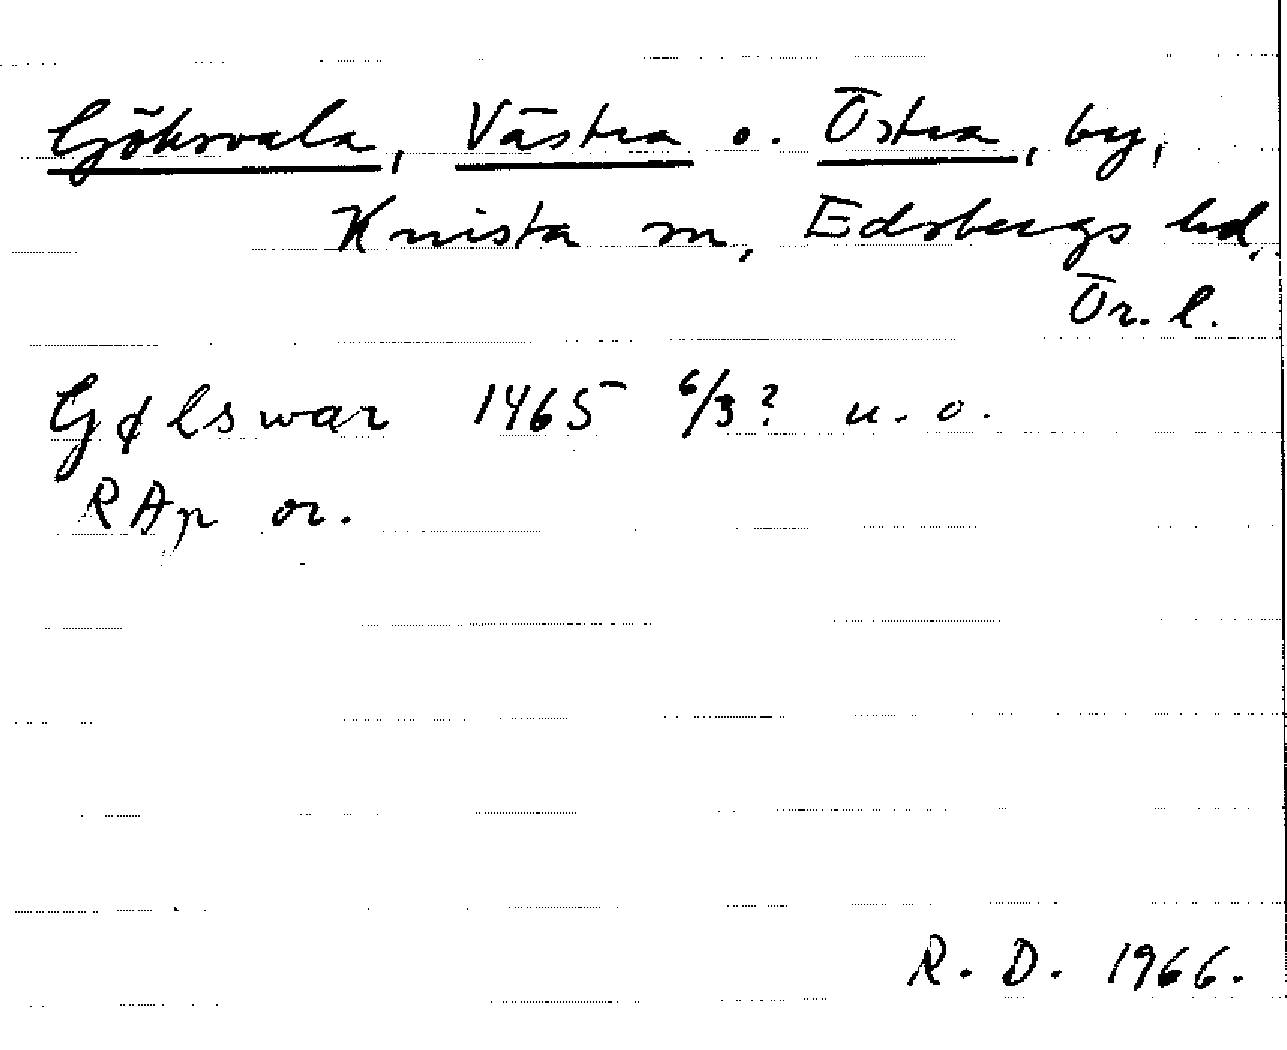 Göksvala, Västra o. Östra, by,
Knista sn, Edsbergs hd,
Ör. l.
Gølswar 1465 6/3? u. o.
RAp or.
R. D. 1966.